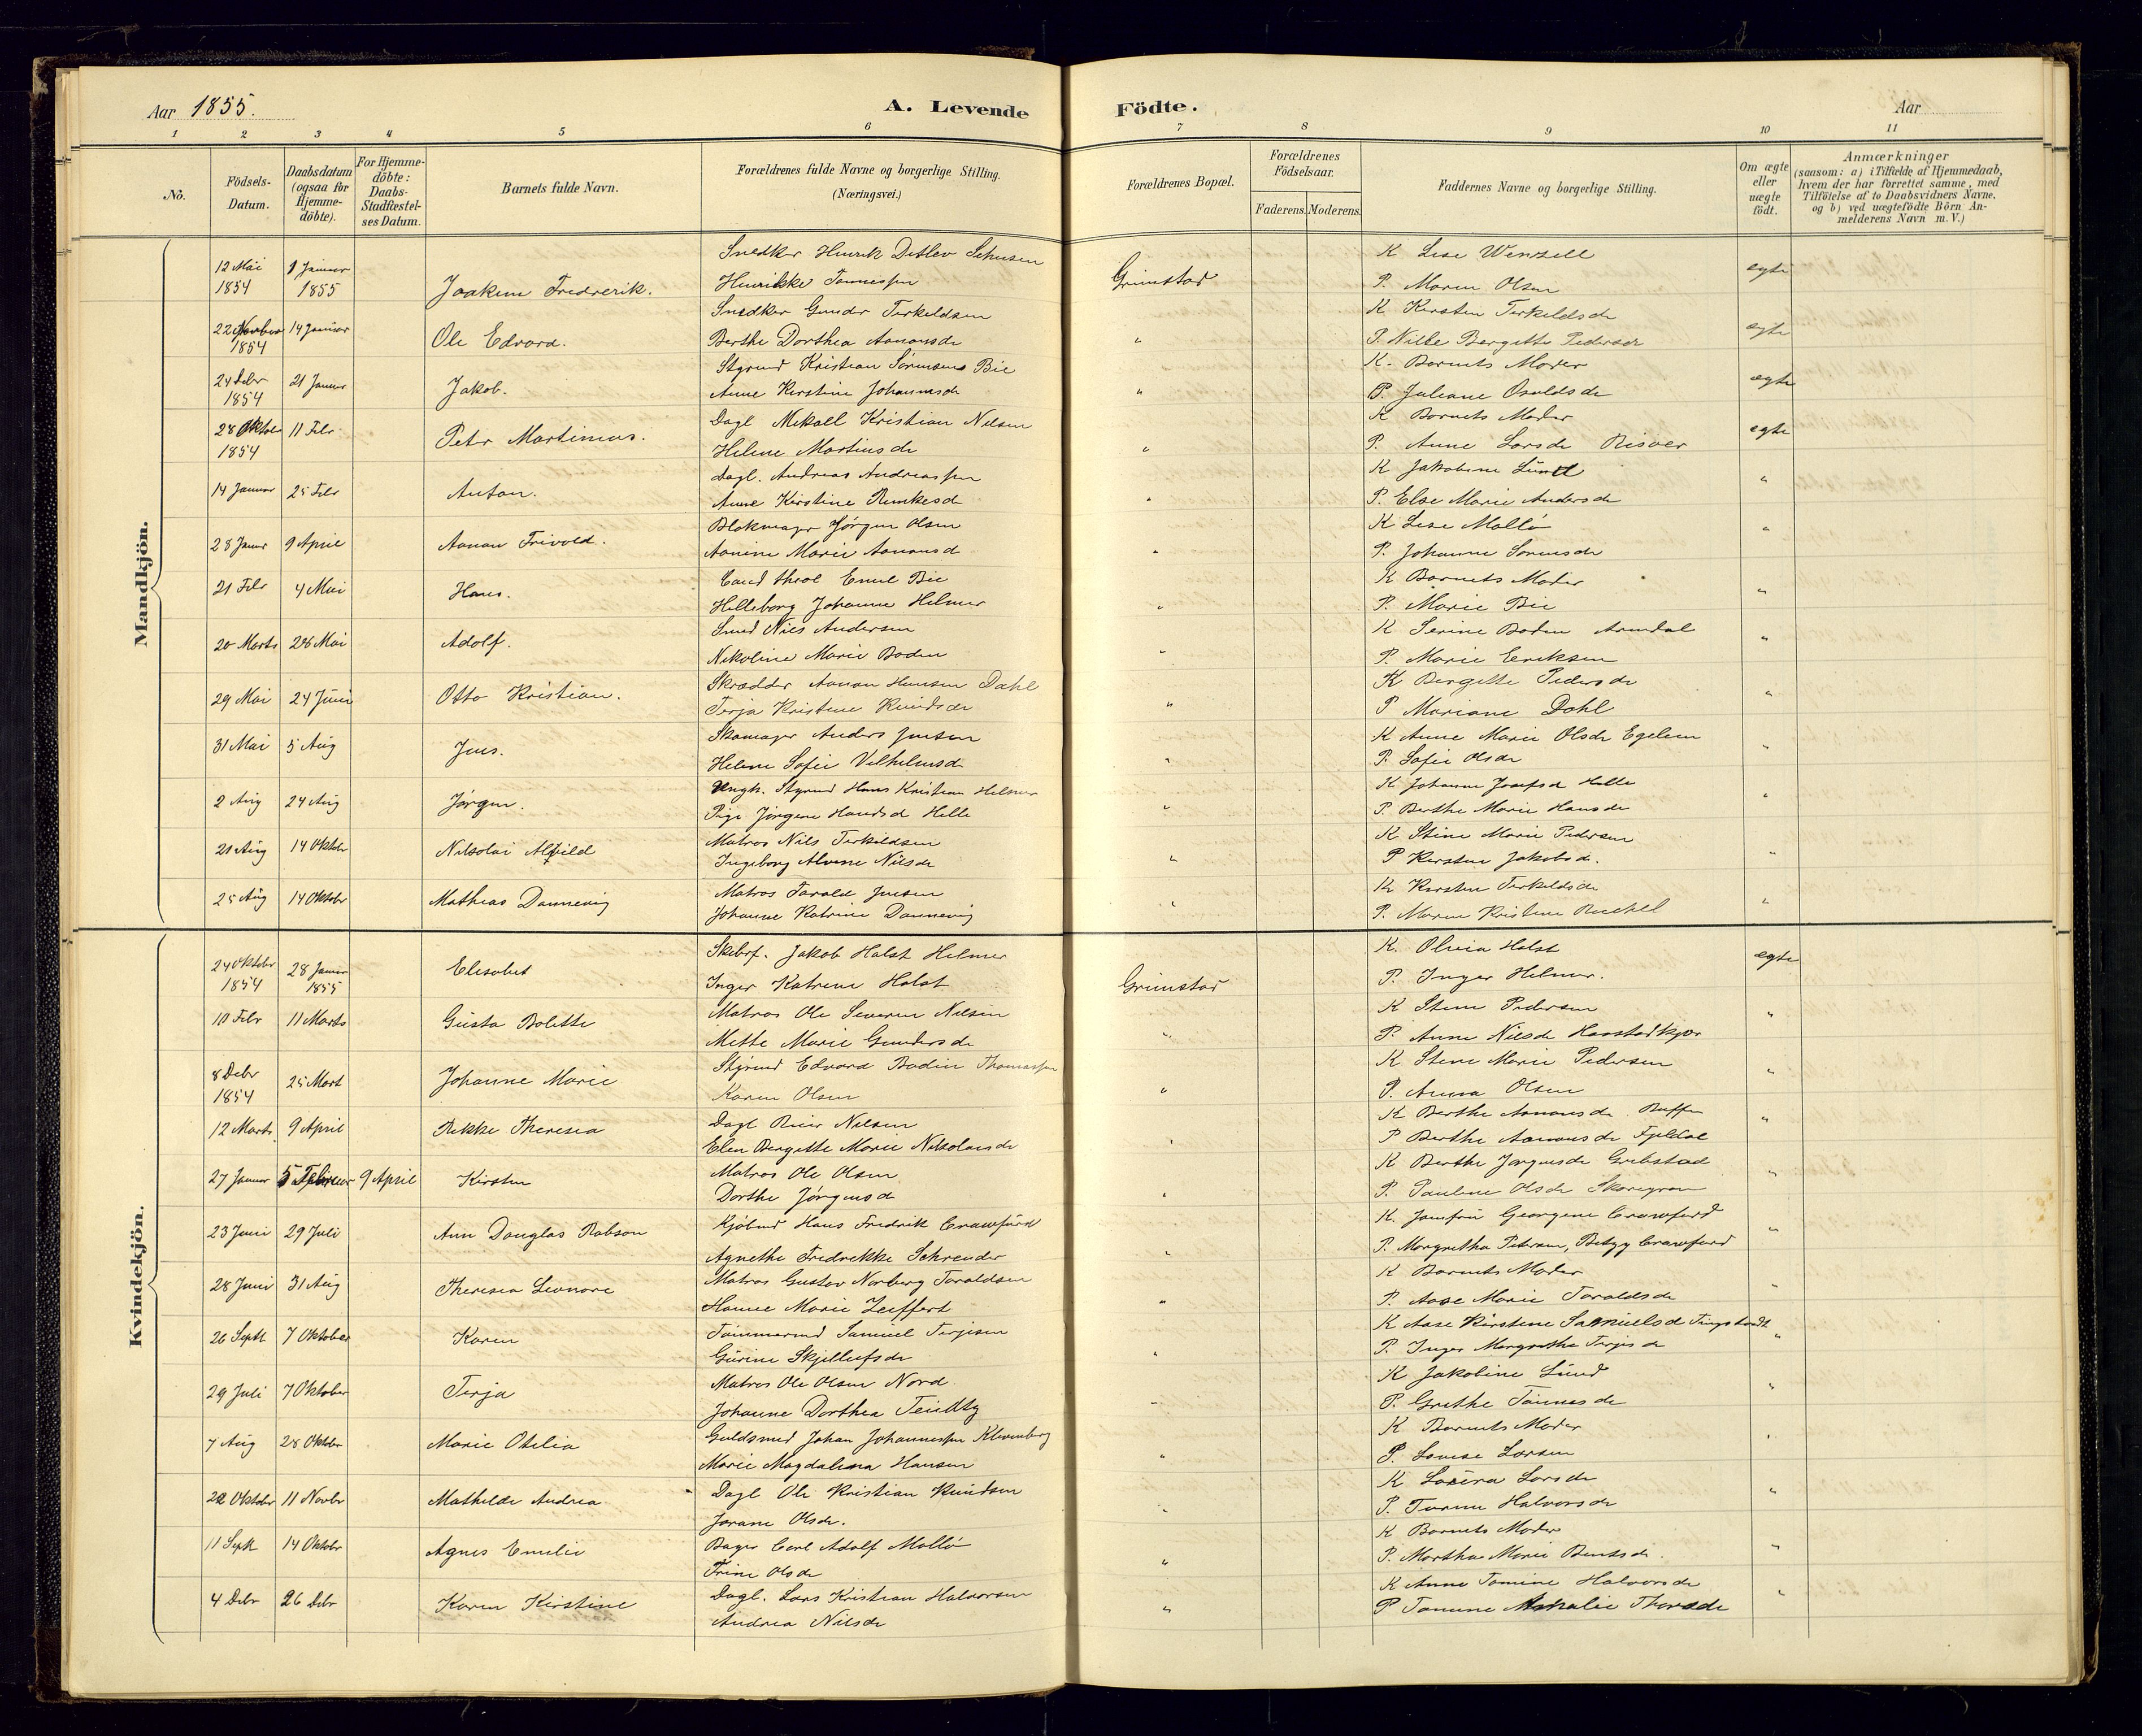 Aar 1855.
A. Levende Födte.
Aar
1 2 3 4 5 6 7 8 9 10 11
No.
Födsels-Datum.
Daabsdatum (ogsaa for Hjemme-döbte).
For Hjemme-döbte: Daabs-Stadfæstel-ses Datum.
Barnets fulde Navn.
Forældrenes fulde Navne og borgerlige Stilling. (Næringsvei.)
Forældrenes Bopæl.
Forældrenes Födselsaar.
Faderens. Moderens.
Faddernes Navne og borgerlige Stilling.
Om ægte eller uægte födt.
Anmærkninger (saasom: a) i Tilfælde af Hjemmedaab, hvem der har forrettet samme, med Tilföielse af to Daabsvidners Navne, og b) ved uægtefödte Börn An-melderens Navn m. V.)
Mandkjön.
12 Mai 1854 1 Januar 1855 Joakim Fredrerik. Snedker Henrik Detlev Hinrikke Tønnessen Grimstad K Lise Wentzell P. Maren Olsen egte
22 Novber 1854 14 Januar Ole Edvard. Snedker Gunder Terkeldsen Berthe Dorthea Aanonsdr " K Kirsten Terkeldsdr P. Nille Bergitte Pedersdr egte
24 Debr 1854 21 Januar Jakob. Styrmd Kristian Sørensen Bie Anne Kirstine Johannsdr " K. Barnets Moder P. Juliane Osuldsdr egte
28 Oktober 1854 11 Febr Peter Martinius. Dagl Mikall Kristian Nilsen Helene Martinsdr " K Barnets Moder P. Anne Larsdr Risøer egte
14 Januar 25 Febr Anton. Dagl. Andreas Andreassen Anne Kirstine Reinkesd " K Jakobine Lund P. Else Marie Andersdr "
28 Januar 9 April Aanon Trivold. Blokmager Jørgen Olsen Aanine Marie Aanonsd " K Lise Mollö P. Johanne Sørensdr "
21 Febr 4 Mai Hans. Cand theol Emil Bie Hilleborg Johanne Helmer " K Barnets Moder P. Marie Bie "
20 Marts 28 Mai Adolf. Smed Niels Andersen Nikoline Marie Boden " K Serine Boden Arendal P. Marie Eriksen "
29 Mai 24 Juni Otto Kristian. Skrædder Aanon Hansen Dahl Terja Kristine Knudsdr " K Bergitte Pedersdr P Mariane Dahl "
31 Mai 5 Aug Jens. Skomager Anders Jensen Helene Sofie Vilhelmsd " K Anne Marie Olsdr Egelien P. Sofie Olsdr "
2 Aug 24 Aug Jørgen. Ungk. Styrmd Hans Kristian Helmer Pige Jørgine Hansd Helle " K Johanne Josefsd Helle P. Berthe Marie Hansdr "
21 Aug 14 Oktbr Nikolai Alfild Matros Nils Terkeldsen Ingeborg Alvine Nilsdr " K Stine Marie Pedersen P Kirsten Jakobsd. "
25 Aug 14 Oktobr Mathias Dannevig Matros Tarald Jensen Johanne Katrine Dannevig " K Kirsten Terkeldsdr P. Maren Kristine "
Kvindekjön.
24 Oktbr 1854 28 Januar 1855 Elisabet Skibsf. Jakob Holst Helmer Inger Katrine Holst Grimstad K. Olivia Holst P. Inger Helmer. egte
10 Febr 11 Marts Gusta Bolette Matros Ole Severin Nilsen Mette Marie Gundersdr " K Stine Pedersen P. Anne Nilsdr "
8 Debr 1854 25 Mart Johanne Marie Styrmd Edvard Bodin Thomassen Karen Olsen " K Stine Marie Pedersen P. Anna Olsen "
12 Marts 9 April Rikke Theresia Dagl Reier Nilsen Elen Bergitte Marie Nikolaisdr " K Berthe Aanonsdr P Berthe Aanonsdr Fjeldal "
27 Januar 5 Februar 9 April Kirsten Matros Ole Olsen Dorthe Jørgensd " K Berthe Jørgensdr Grebstad P. Pauline Olsdr "
23 Juni 29 Juli Ann Douglas Robson Kjøbmd Hans Fredrik Crawfurd Agnethe Fredrikke Schrøuder " K. Jomfru Georgine Crawfurd P. Margretha Petersen, Betzy Crawfurd "
28 Juni 31 Aug Theresia Leonore Matros Gustav Norberg Taraldsen Hanne Marie Zeiffert " K Barnets Moder P. Aase Marie Taraldsdr "
26 Septt 7 Oktober Karen Tømmermd Samuel Terjesen Gurine Skjellufsdr " K Aase Kirstine Samuelsd P. Inger Margrethe Terjesdr "
29 Juli 7 Oktober Terja Matros Ole Olsen Nord Johanne Dorthea " K Jakobine Lund P. Grethe Tønnesdr "
7 Aug 28 Oktobr Marie Otilia Guldsmed Johan Johannessen Klevenberg Marie Magdalena Hansen " K Barnets Moder P. Lovise Larsen "
22 Oktober 11 Novbr Mathilde Andrea Dagl Ole Kristian Knudsen Jørane Olsdr. " K Lovera Larsdr P. Torine Halvorsdr "
11 Sept 14 Oktobr Agnes Emilie Bager Carl Adolf Mollö Trine Olsdr " K Barnets Moder P. Marthe Marie Bentsdr. "
4 Debr 26 Debr Karen Kirstine Dagl. Lars Kristian Halvorsen Andrea Nilsdr " K Anne Tomine Halvorsdr P Tomine Amalie Thorsdr "